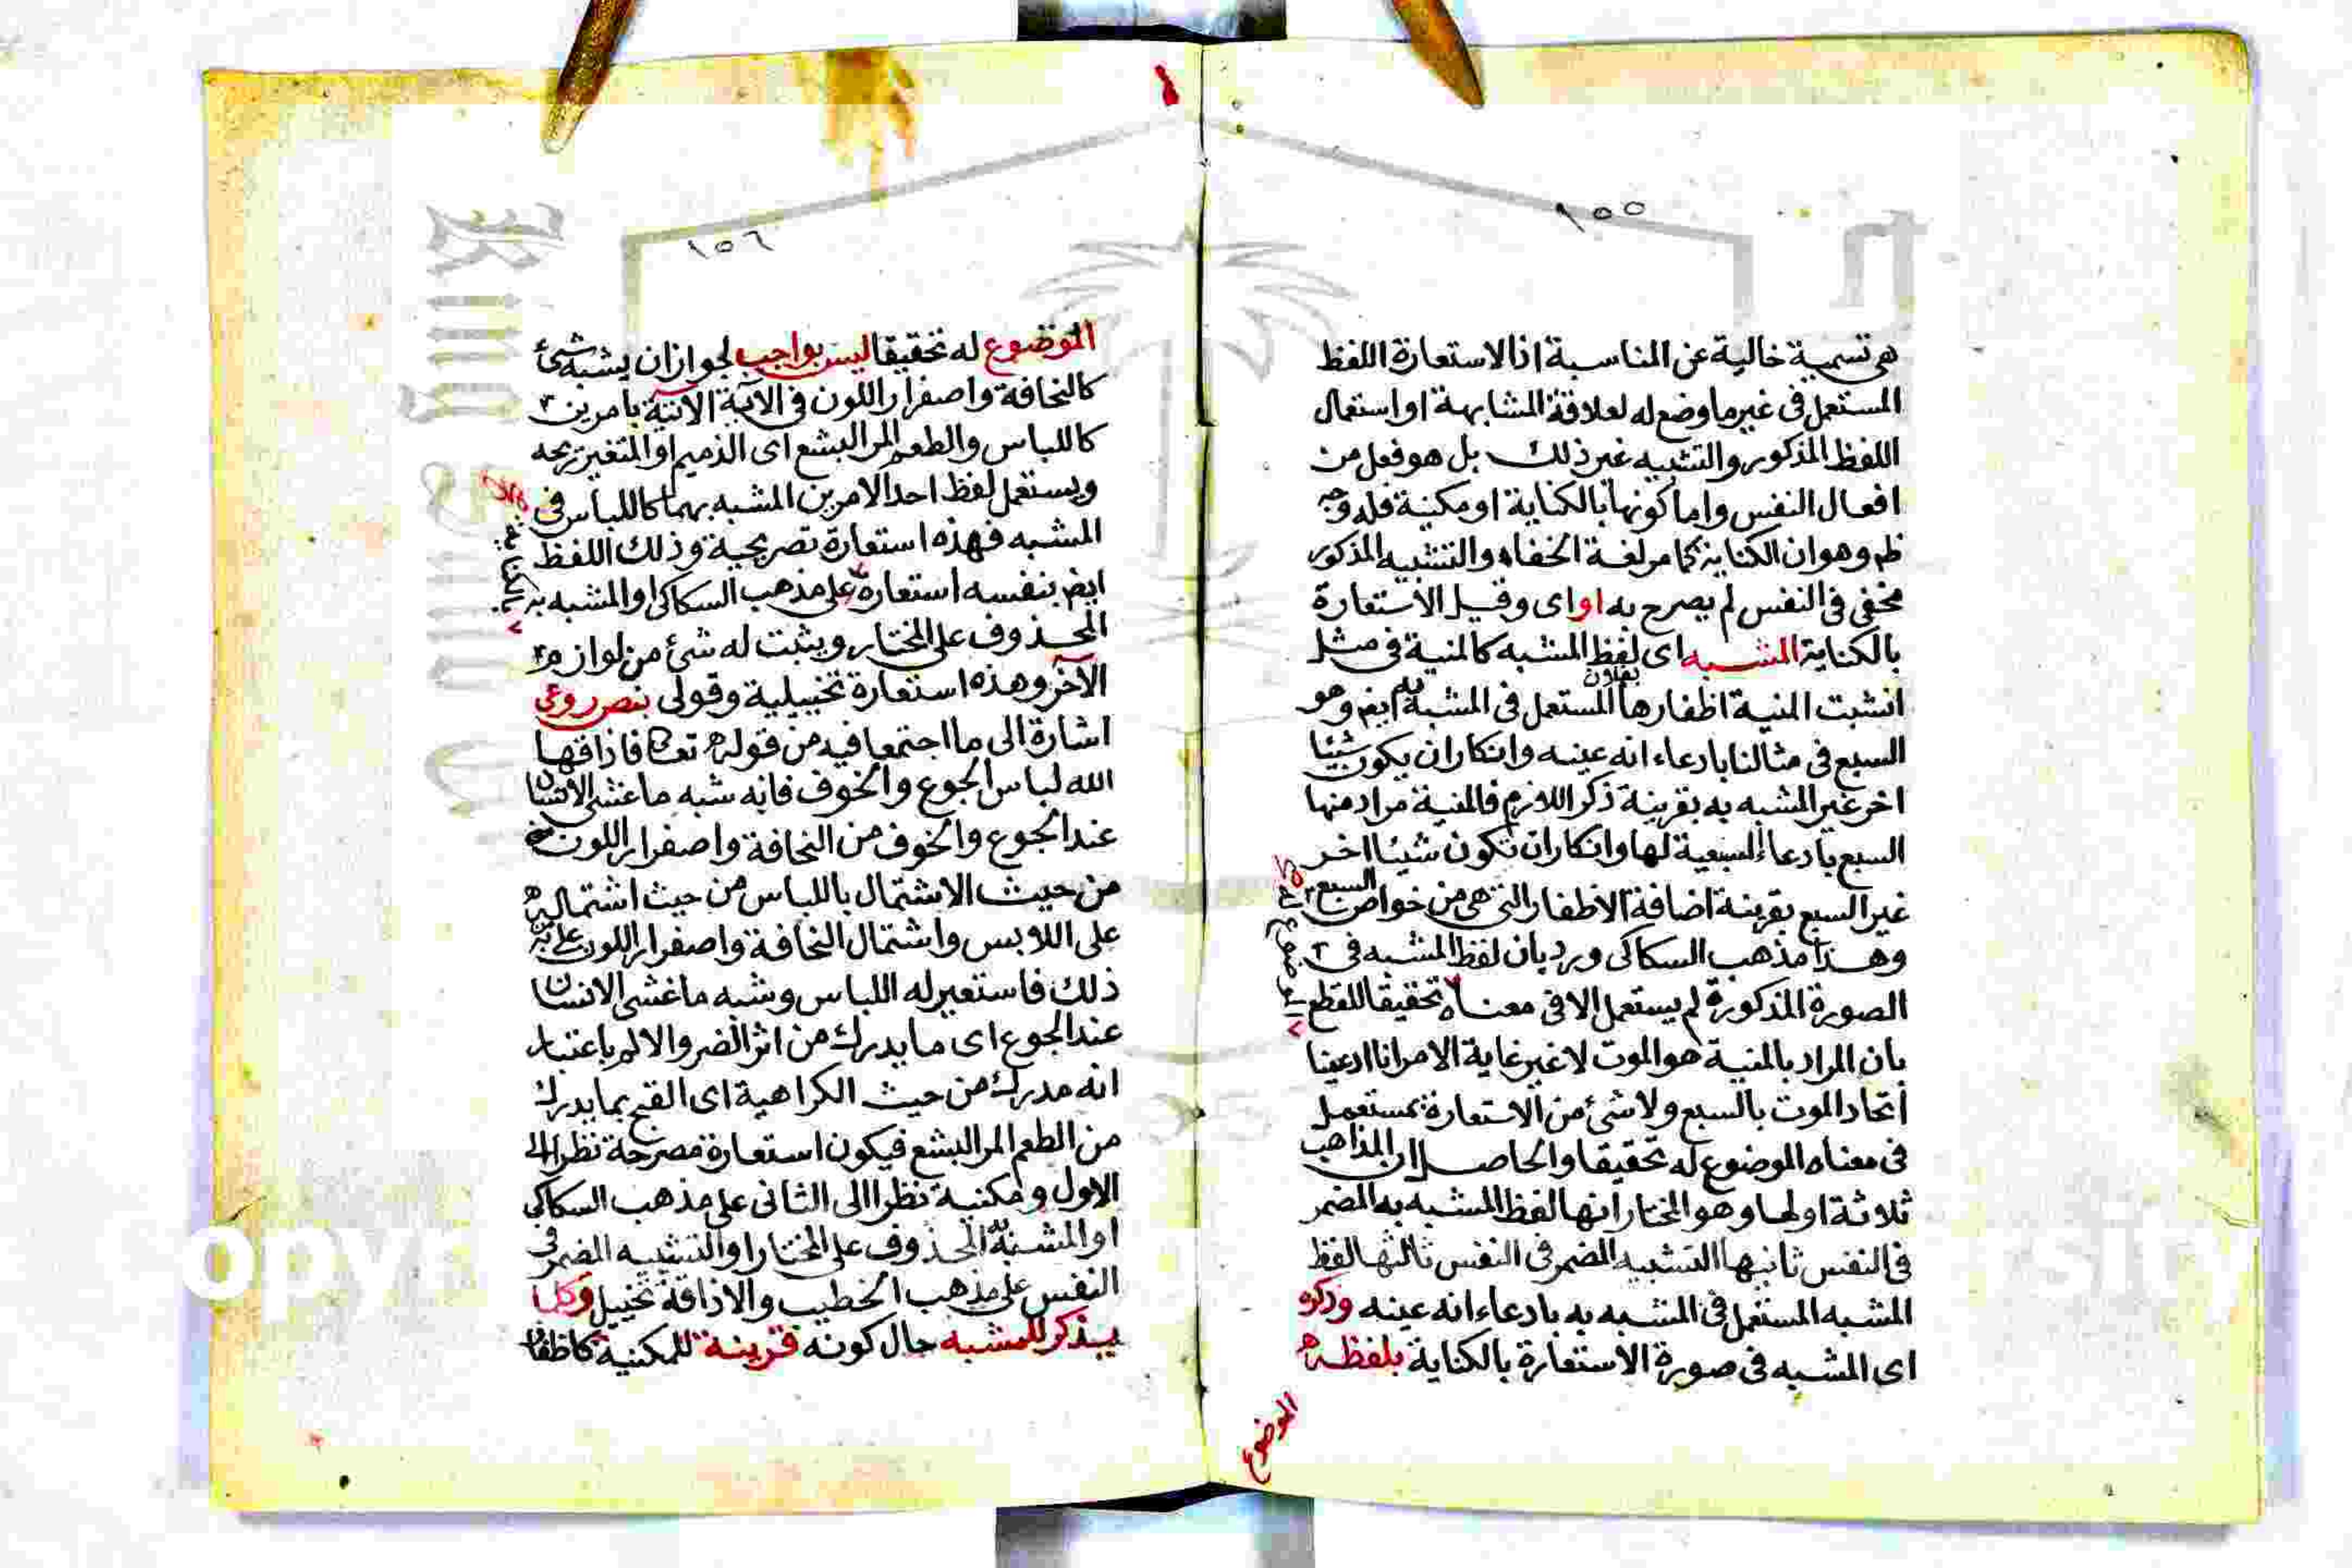 ١٥٥
هى تسمية خالية عن المناسبة اذ الاستعارة اللفظ
المستعمل فى غير ما وضع له لعلاقة المشابهة او استعمال
اللفظ المذكور والتشبيه غير ذلك بل هو فعل من
افعال النفس واما كونها بالكناية او مكنية فله وجه
ظم وهو ان الكناية كما مر لغة الخفاء والتشبيه المذكور
مخفى فى النفس لم يصرح به او اى وقيل الاستعارة
بالكناية المشبه اى لفظ المشبه كالمنية فى مثل
انشبت المنية اظفارها بفلان المستعمل فى المشبه به ايض وهو
السبع فى مثالنا بادعاء انه عينه وانكار ان يكون شيئا
اخر غير المشبه به بقرينة ذكر اللازم فالمنية مراد منها
السبع بادعاء السبعية لها وانكار ان تكون شيئا اخر
غير السبع بقرينة اضافة الاظفار التى هى من خواص السبع
وهذا مذهب السكاكى ورد بان لفظ المشبه فى
الصورة المذكورة لم يستعمل الا فى معناه تحقيقا للقطع
بان المراد بالمنية هو الموت لا غير غاية الامر انا ادعينا
اتحاد الموت بالسبع ولا شئ من الاستعارة بمستعمل
فى معناه الموضوع له تحقيقا والحاصل ان المذاهب
ثلاثة اولها وهو المختار انها لفظ المشبه به المضمر
فى النفس ثانيها التشبيه المضمر فى النفس ثالثها لفظ
المشبه المستعمل فى المشبه به بادعاء انه عينه وذكره
اى المشبه فى صورة الاستعارة بالكناية بلفظه
الموضوع
١٥٦
الموضوع له تحقيقا ليس بواجب لجواز ان يشبه شئ
كالنحافة واصفرار اللون فى الآية الآتية بامرين
كاللباس والطعم المر البشع اى الذميم او المتغير ريحه
ويستعمل لفظ احد الامرين المشبه بهما كاللباس فى
المشبه فهذه استعارة تصريحية وذلك اللفظ
ايض بنفسه استعارة على مذهب السكاكى او المشبه به
المحذوف على المختار ويثبت له شئ من لوازم
الآخر وهذه استعارة تخييلية وقولى بنص روعى
اشارة الى ما اجتمعا فيه من قوله تعا فاذاقها
الله لباس الجوع والخوف فانه شبه ما غشى الانسان
عند الجوع والخوف من النحافة واصفرار اللون
من حيث الاشتمال باللباس من حيث اشتماله
على اللابس واشتمال النحافة واصفرار اللون على
ذلك فاستعير له اللباس وشبه ما غشى الانسان
عند الجوع اى ما يدرك من اثر الضر والالم باعتبار
انه مدرك من حيث الكراهية اى القبح بما يدرك
من الطعم المر البشع فيكون استعارة مصرحة نظرا الى
الاول ومكنية نظرا الى الثانى على مذهب السكاكى
او المشبه به المحذوف على المختار او التشبيه المضمر فى
النفس على مذهب الخطيب والاذاقة تخييل وكلما
يذكر للمشبه حال كونه قرينة للمكنية كاظفار